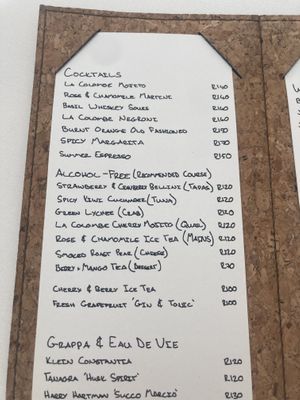 Cocktails
La Colombe Mojito R140
Rose & Chamomile Martini R160
Basil Whiskey Sour R160
La Colombe Negroni R160
Burnt Orange Old Fashioned R170
Spicy Margarita R170
Summer Espresso R150
Alcohol-Free (Recommended Course)
Strawberry & Cranberry Bellini (Tapas) R120
Spicy Kiwi Cucumber (Tuna) R120
Green Lychee (Crab) R120
La Colombe Cherry Mojito (Quail) R120
Rose & Chamomile Ice Tea (Mains) R120
Smoked Roast Pear (Cheese) R120
Berry & Mango Tea (Dessert) R70
Cherry & Berry Ice Tea R100
Fresh Grapefruit 'Gin & Tonic' R100
Grappa & Eau De Vie
Klein Constantia R120
Tanagra 'Husk Spirit' R120
Harry Hartman 'Succo Marcio' R130